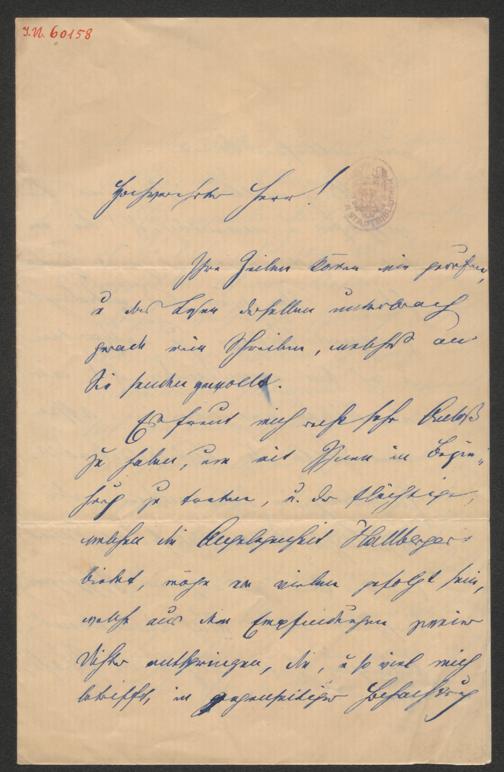 J.N. 60158
Hochverehrter Herr!
Ihre Zeilen kamen wie gerufen,
u das Lesen derselben unterbrach
gerade mein Schreiben, welches an
Sie senden gewollt.
Es freut mich recht sehr Anlaß
zu haben, um mit Ihnen in Bezie-
hung zu treten, u. der flüchtige,
welchen die Angelegenheit Hallberger
bietet, möge von vielen gefolgt sein,
welche aus den Empfindungen zweier
Dichter entspringen, die, u so viel mich
betrifft, in gegenseitiger Hochachtung